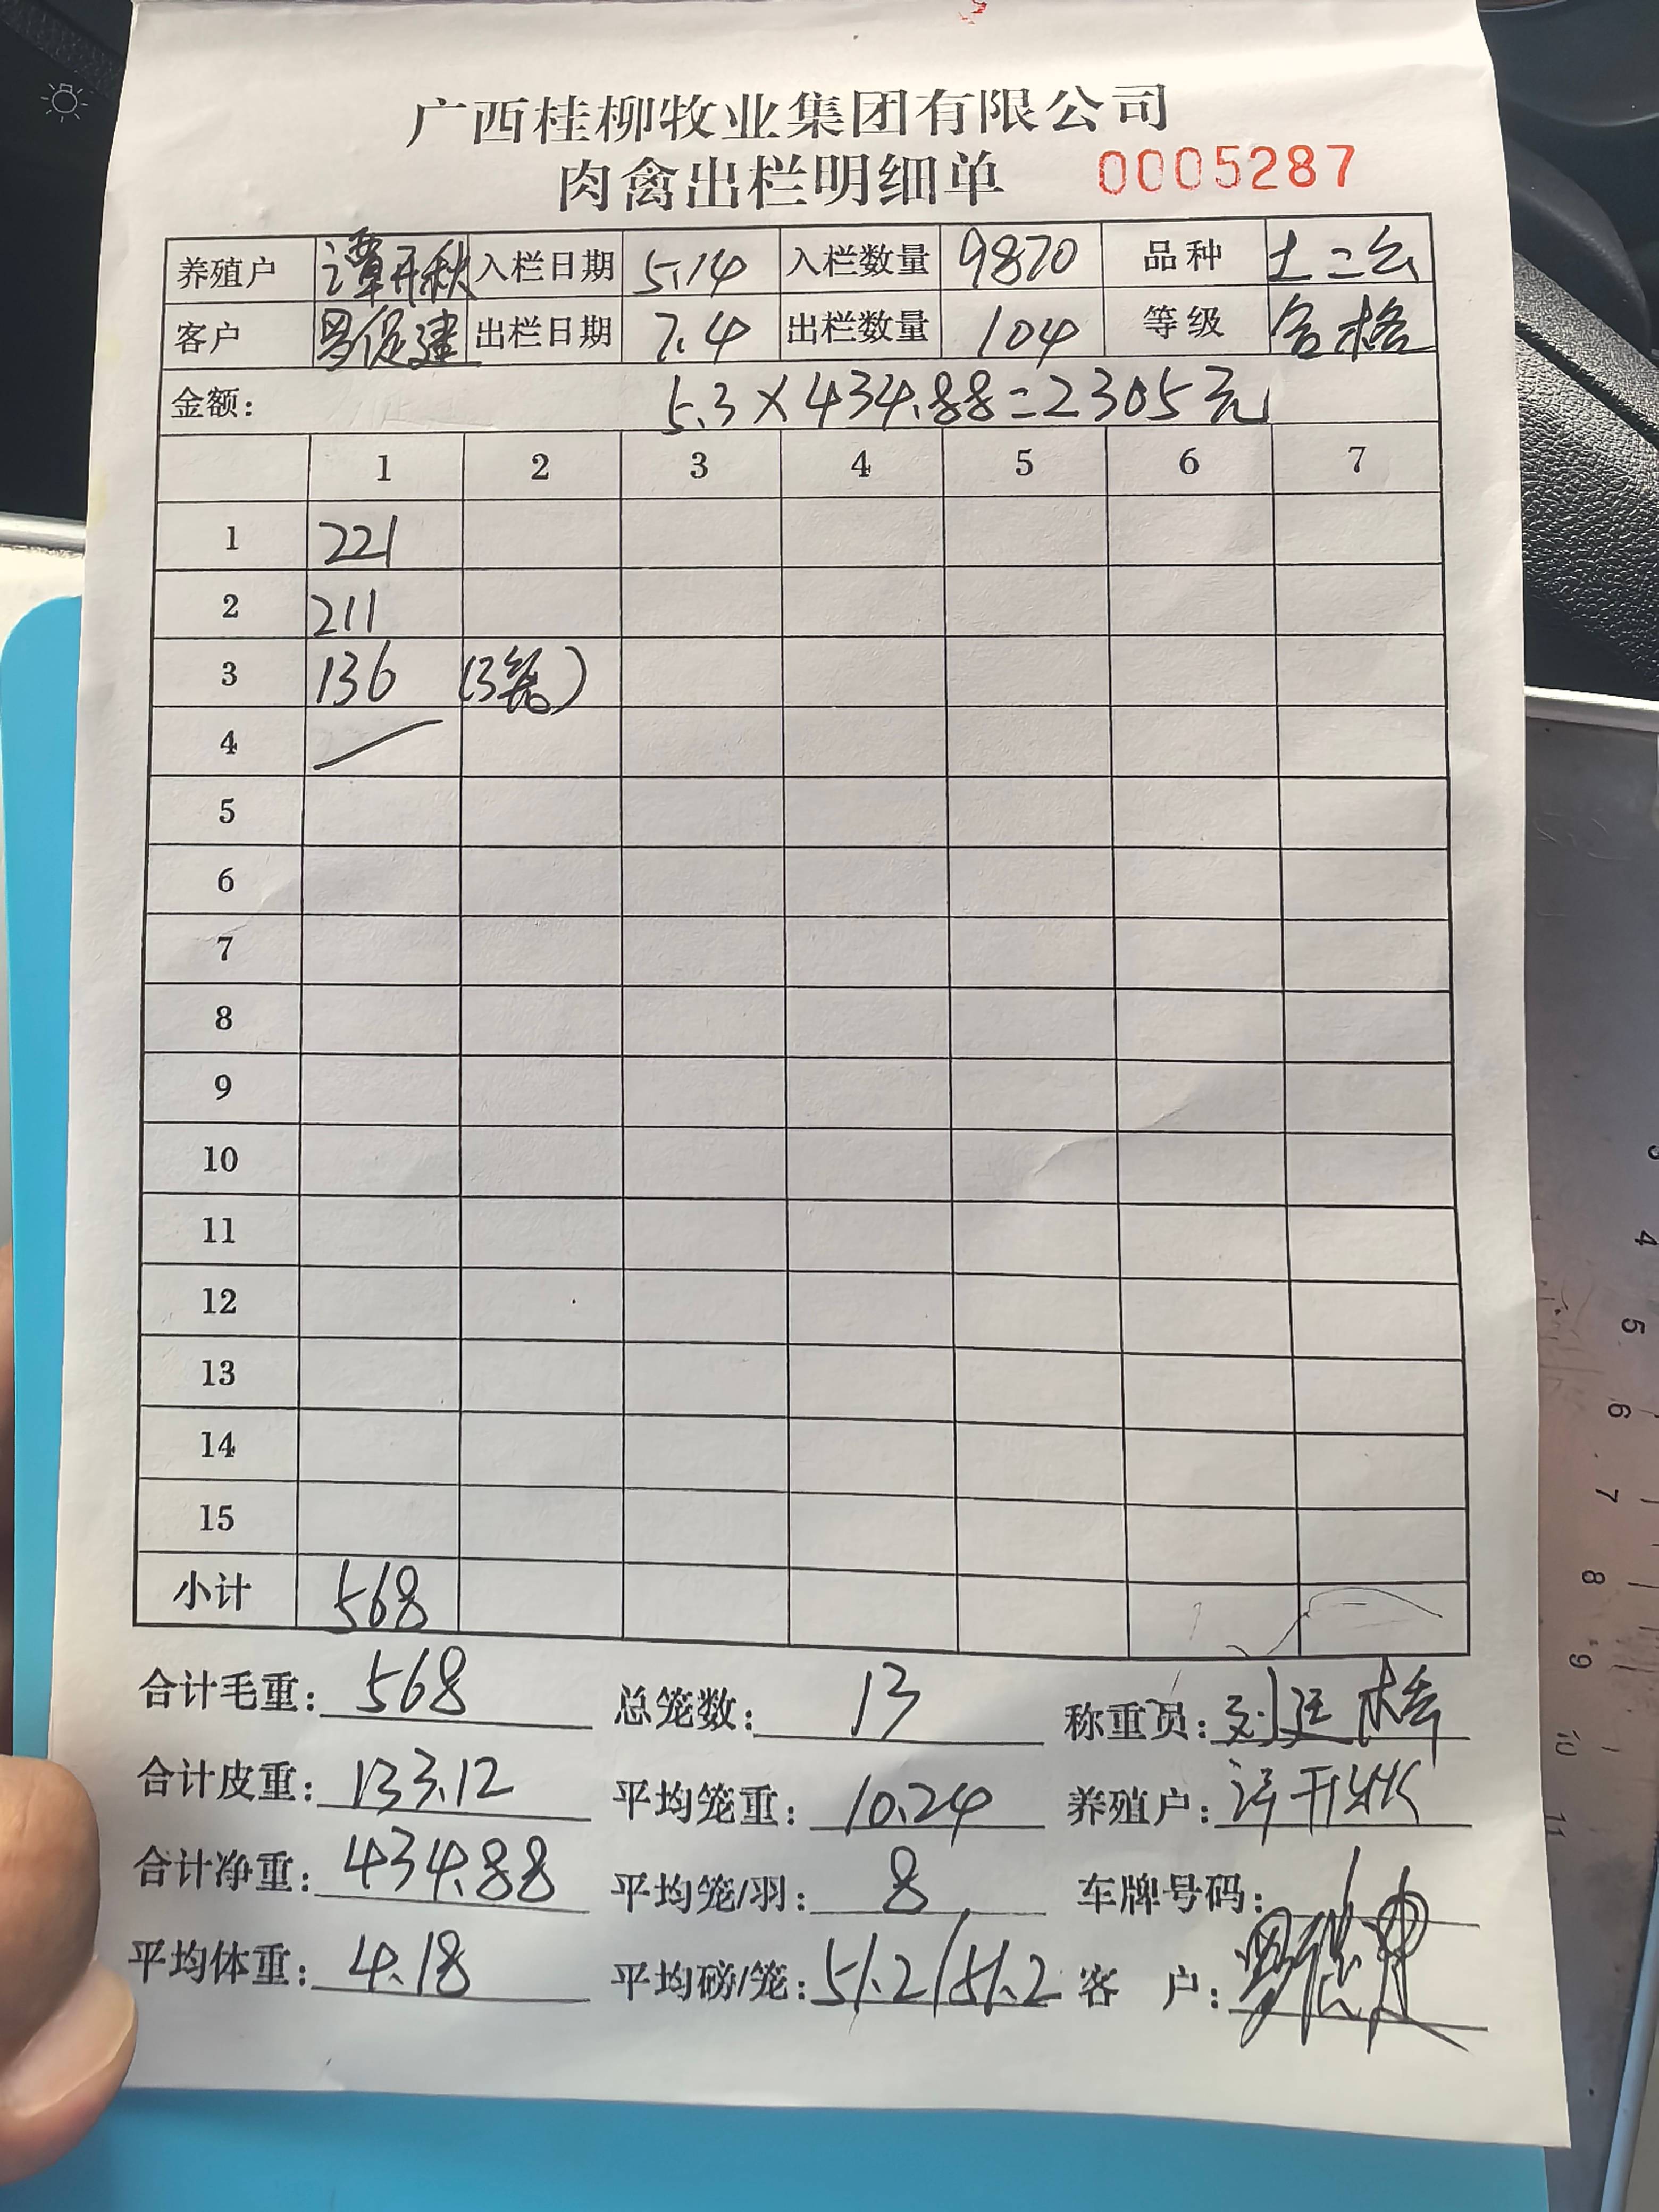 广西桂柳牧业集团有限公司
肉禽出栏明细单 0005287
养殖户 谭开秋 入栏日期 5.14 入栏数量 9870 品种 土二公
客户 出栏日期 7.4 出栏数量 104 等级 合格
金额: 5.3×434.88=2305元
1 2 3 4 5 6 7
1 221
2 211
3 136 (3笼)
4
5
6
7
8
9
10
11
12
13
14
15
小计 568
合计毛重: 568 总笼数: 13 称重员:
合计皮重: 133.12 平均笼重: 10.24 养殖户: 谭开秋
合计净重: 434.88 平均笼/羽: 8 车牌号码:
平均体重: 4.18 平均磅/笼: 51.2/51.2 客户:
3
4
5
6
7
8
9
10
11